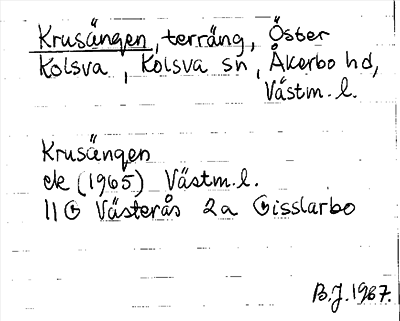 Krusängen, terräng, Öster
Kolsva, Kolsva sn, Åkerbo hd,
Västm. l.
Krusängen
ek (1965) Västm. l.
11 G Västerås 2a Gisslarbo
B.J. 1967.